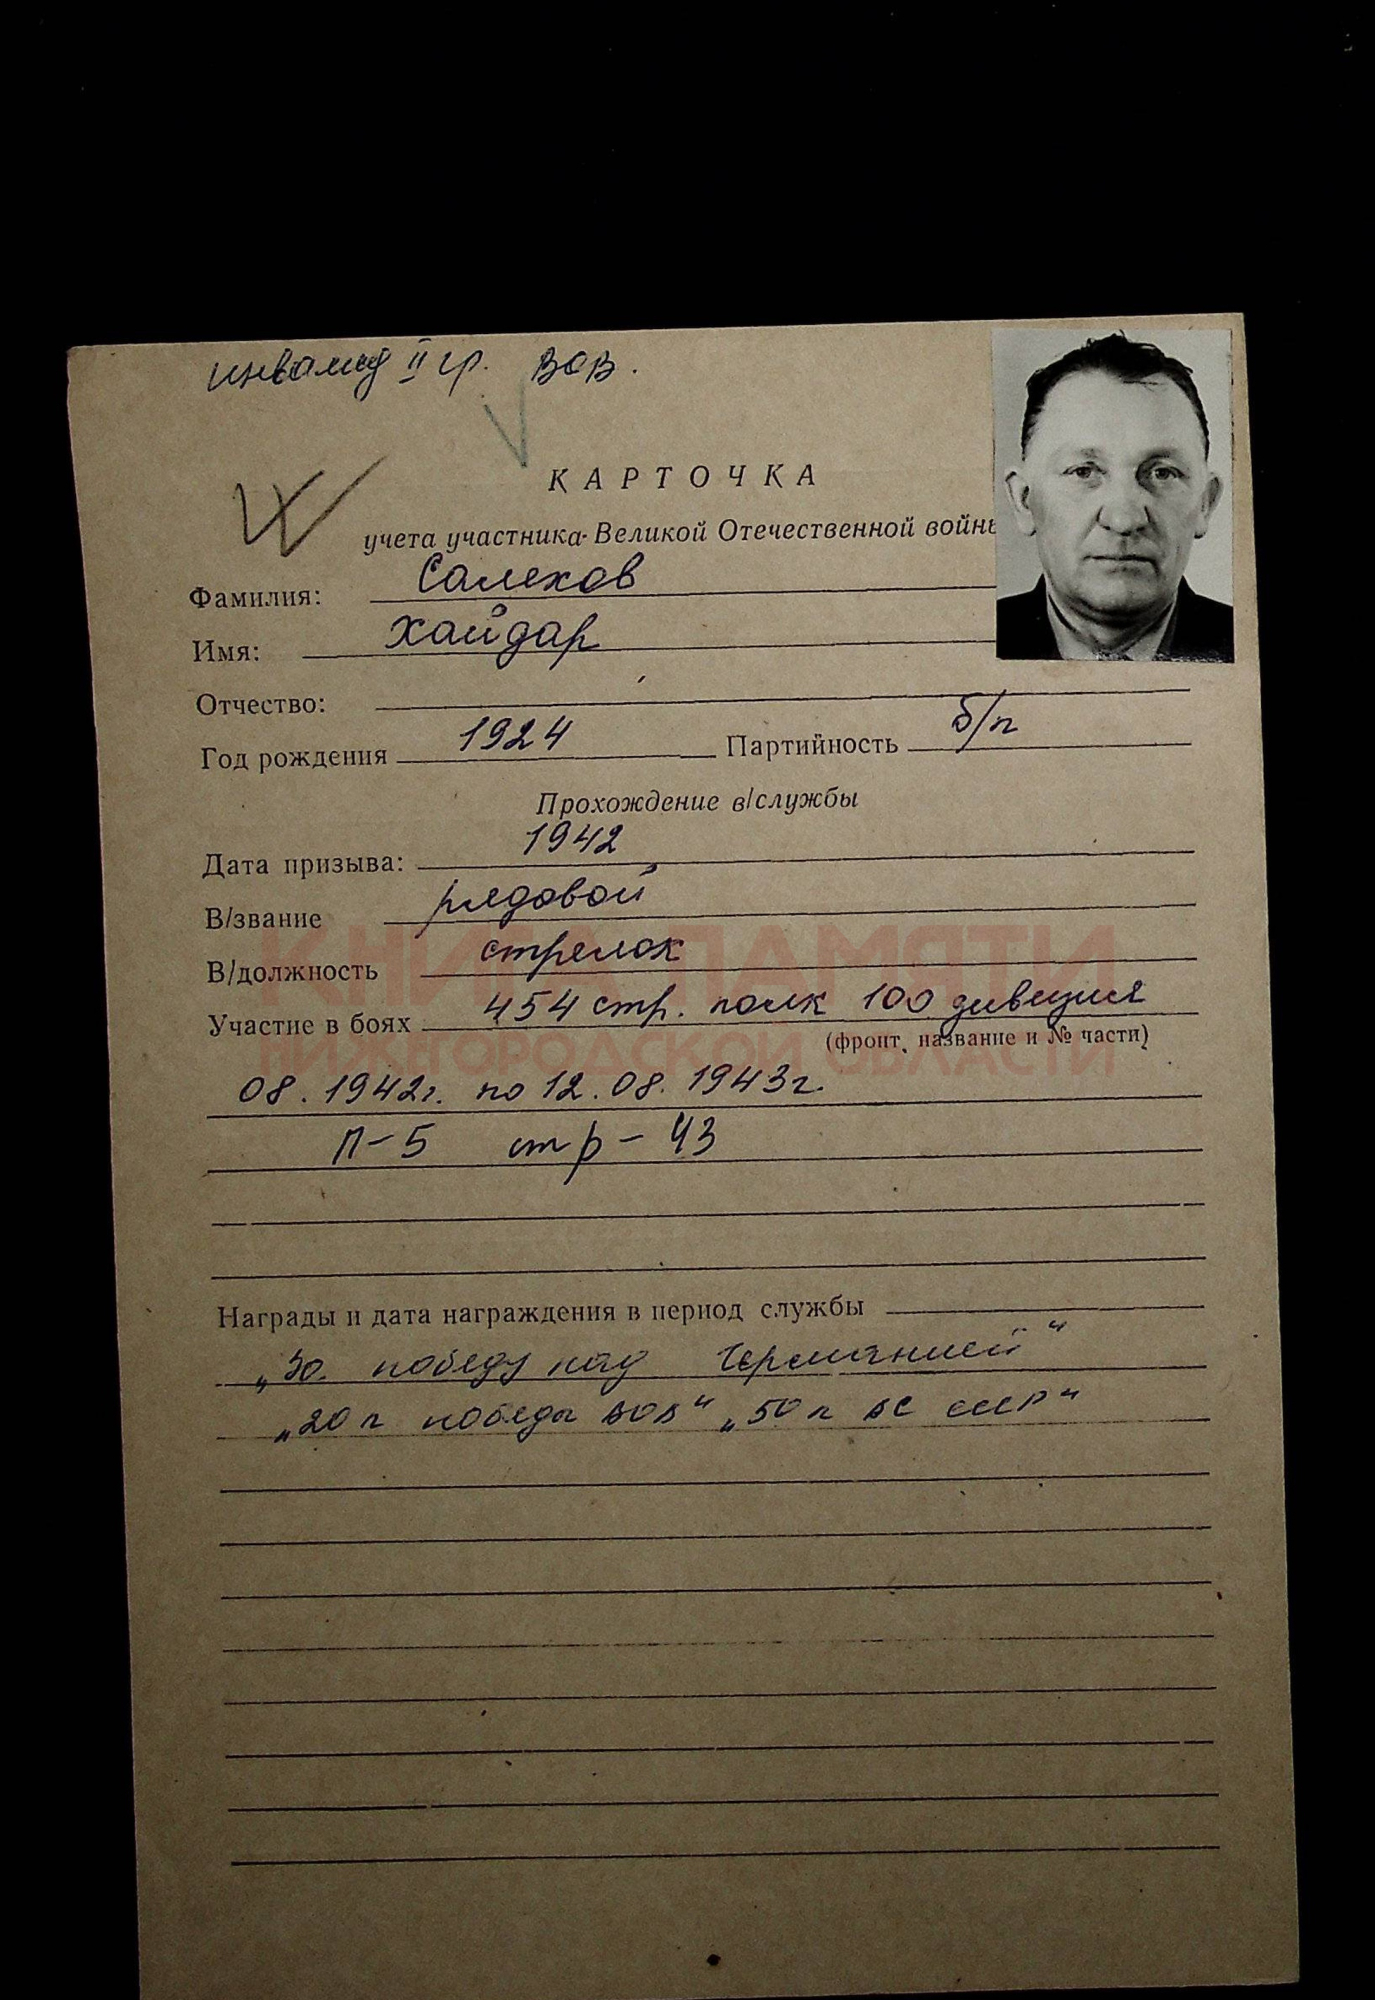 инвалид II гр. ВОВ.
КАРТОЧКА
учета участника Великой Отечественной войны
Фамилия: Салехов
Имя: Хайдар
Отчество:
Год рождения 1924 Партийность б/п
Прохождение в/службы
Дата призыва: 1942
В/звание рядовой
В/должность стрелок
КНИГА ПАМЯТИ
Участие в боях 454 стр. полк 100 дивизия
(фронт, название и № части)
НИЖГОРОДСКОЙ ОБЛАСТИ
08. 1942г. по 12.08.1943г.
П-5 стр-43
Награды и дата награждения в период службы
„За победу над Германией“
„20 л победы ВОВ“ „50 л ВС СССР“